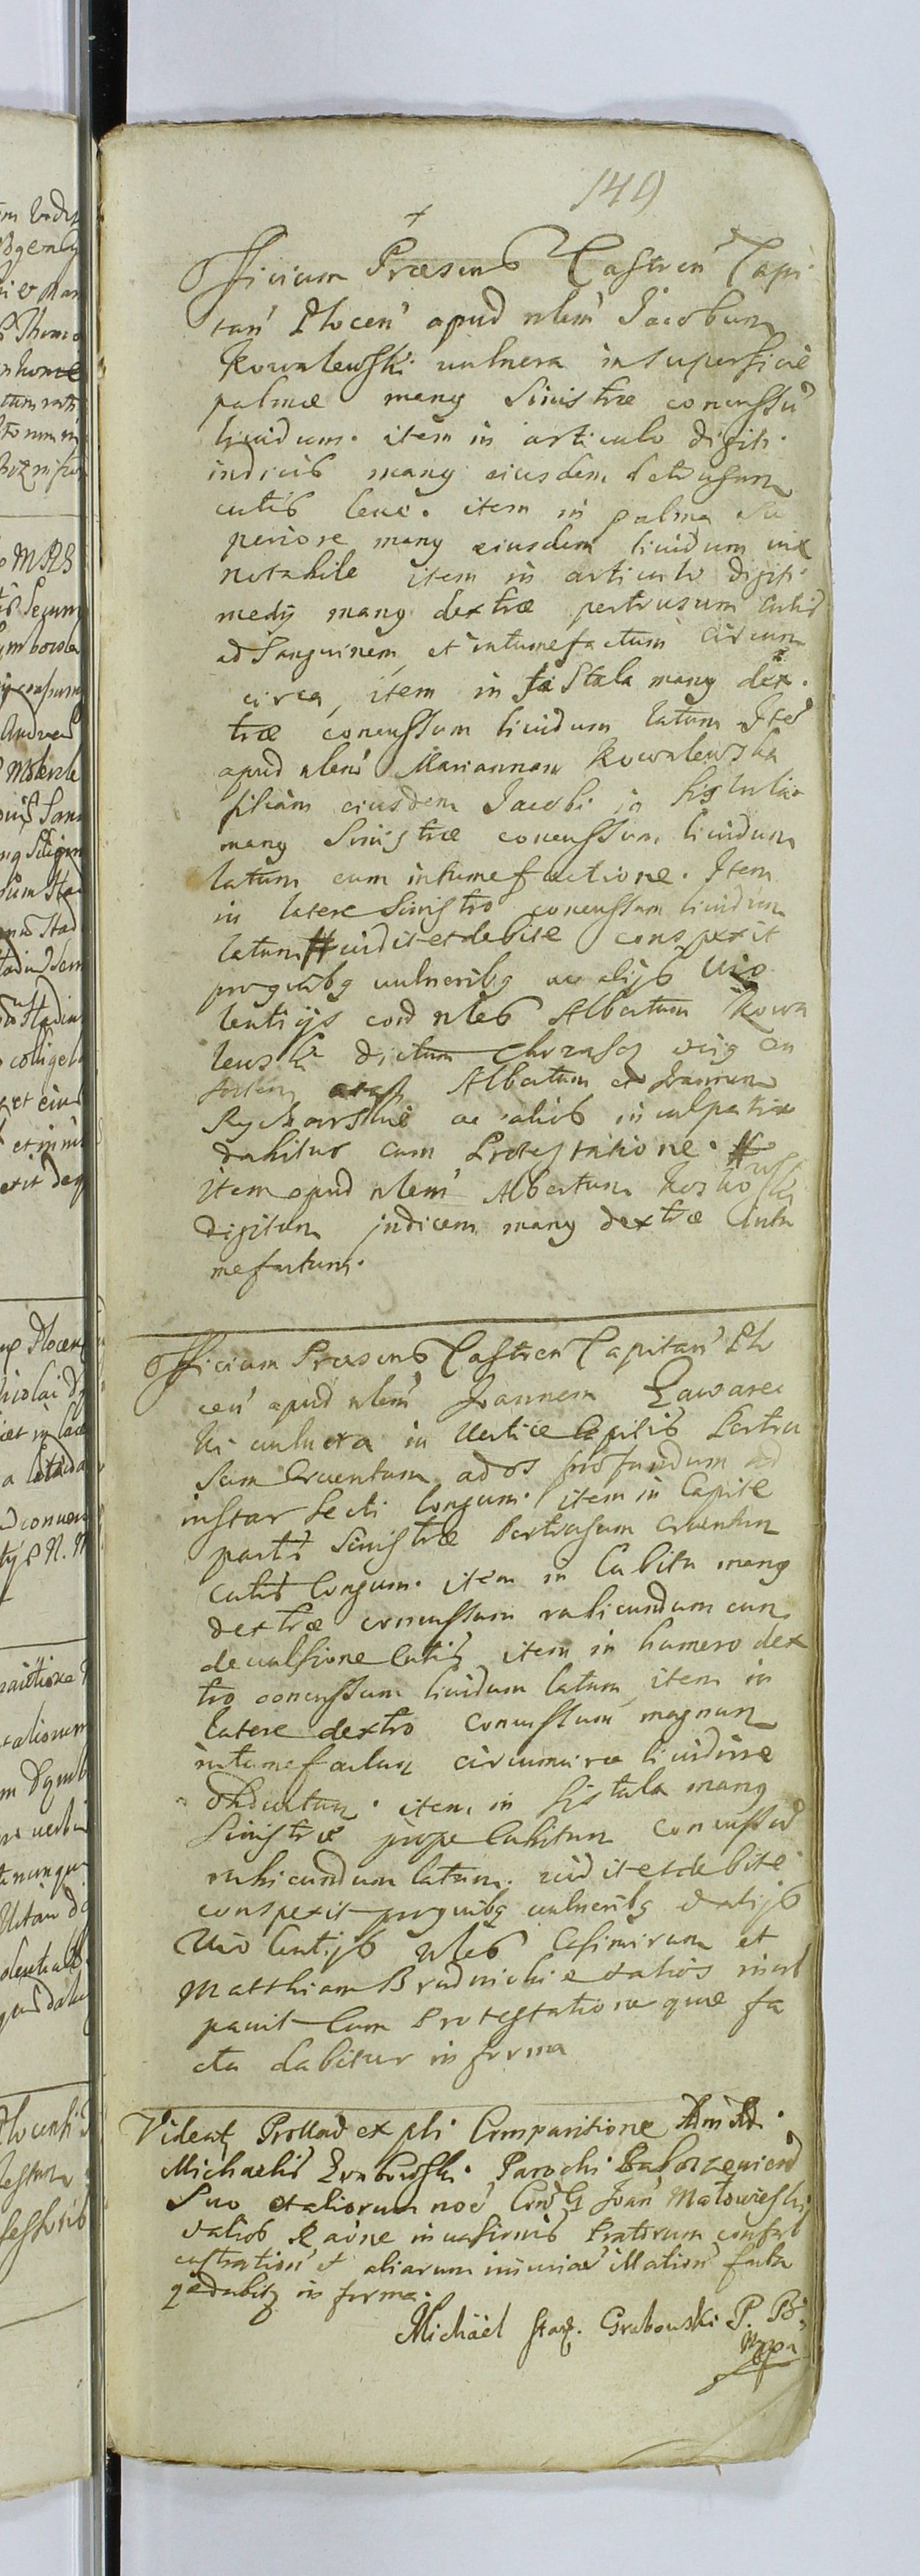 149
Officium Præsens Castren Capi
tan Plocen apud nlem Jacobum
Kowalewski vulnera in superficie
palmæ manus sinistræ concussu
lividum. item in articulo digiti
indicis manus eiusdem detrusum
cutis leve. item in palma su
periore manus eiusdem lividum vix
notabile item in articulo digiti
medij manus dextræ pertrusum cutis
ad sanguinem et intumefactum circum
circa, item in fistula manus dex
træ concussum lividum latum Item
apud nlem Mariannam Kowalewska
filiam eiusdem Jacobi in fistula
manus sinistræ concussum lividum
latum cum intumefactione. Item
in latere sinistro concussum lividum
latum # vidit et debite conspexit
pro quibq vulneribq ac alijs vio
lentijs eord nles Albertum Kowa
lewski dictum eius
Albertum et Joannem
ac alios inculpatio
dabitur cum Protestatione. #
item apud nlem Albertum
digitum indicem manus dextræ intu
mefactum.
Officium Præsens Castren Capitan Plo
cen apud nlem Joannem Zawarec
ki vulnera in vertice Capitis Pertru
sum Cruentum ad os profundum ad
instar longum item in Capite
parte sinistræ Pertrusum cruentum
cutis longum. item in Cubitu manus
dextræ concussum rubicundum cum
devulsione Cutis item in humero dex
tro concussum lividum latum item in
latere dextro concussum magnum
intumefactum circumcirca lividine
obductum. item in fistula manus
sinistræ prope Cubitum concussum
rubicundum latum. vidit et debite
conspexit pro quibq vulneribq et alijs
violentijs nles Casimirum et
Matthiam et alios incul
pavit Cum Protestatione quæ fa
cta dabitur in forma
Videatq ex pti Comparitione Adm Rdi
Michaelis Grabowski Parochi
Suo et aliorum noe Con G Joan
et alios invasionis Pratorum
et aliarum iniuriar illation facta
qæ dabitq in forma.
Michäel Grabowski P. B.
mppa